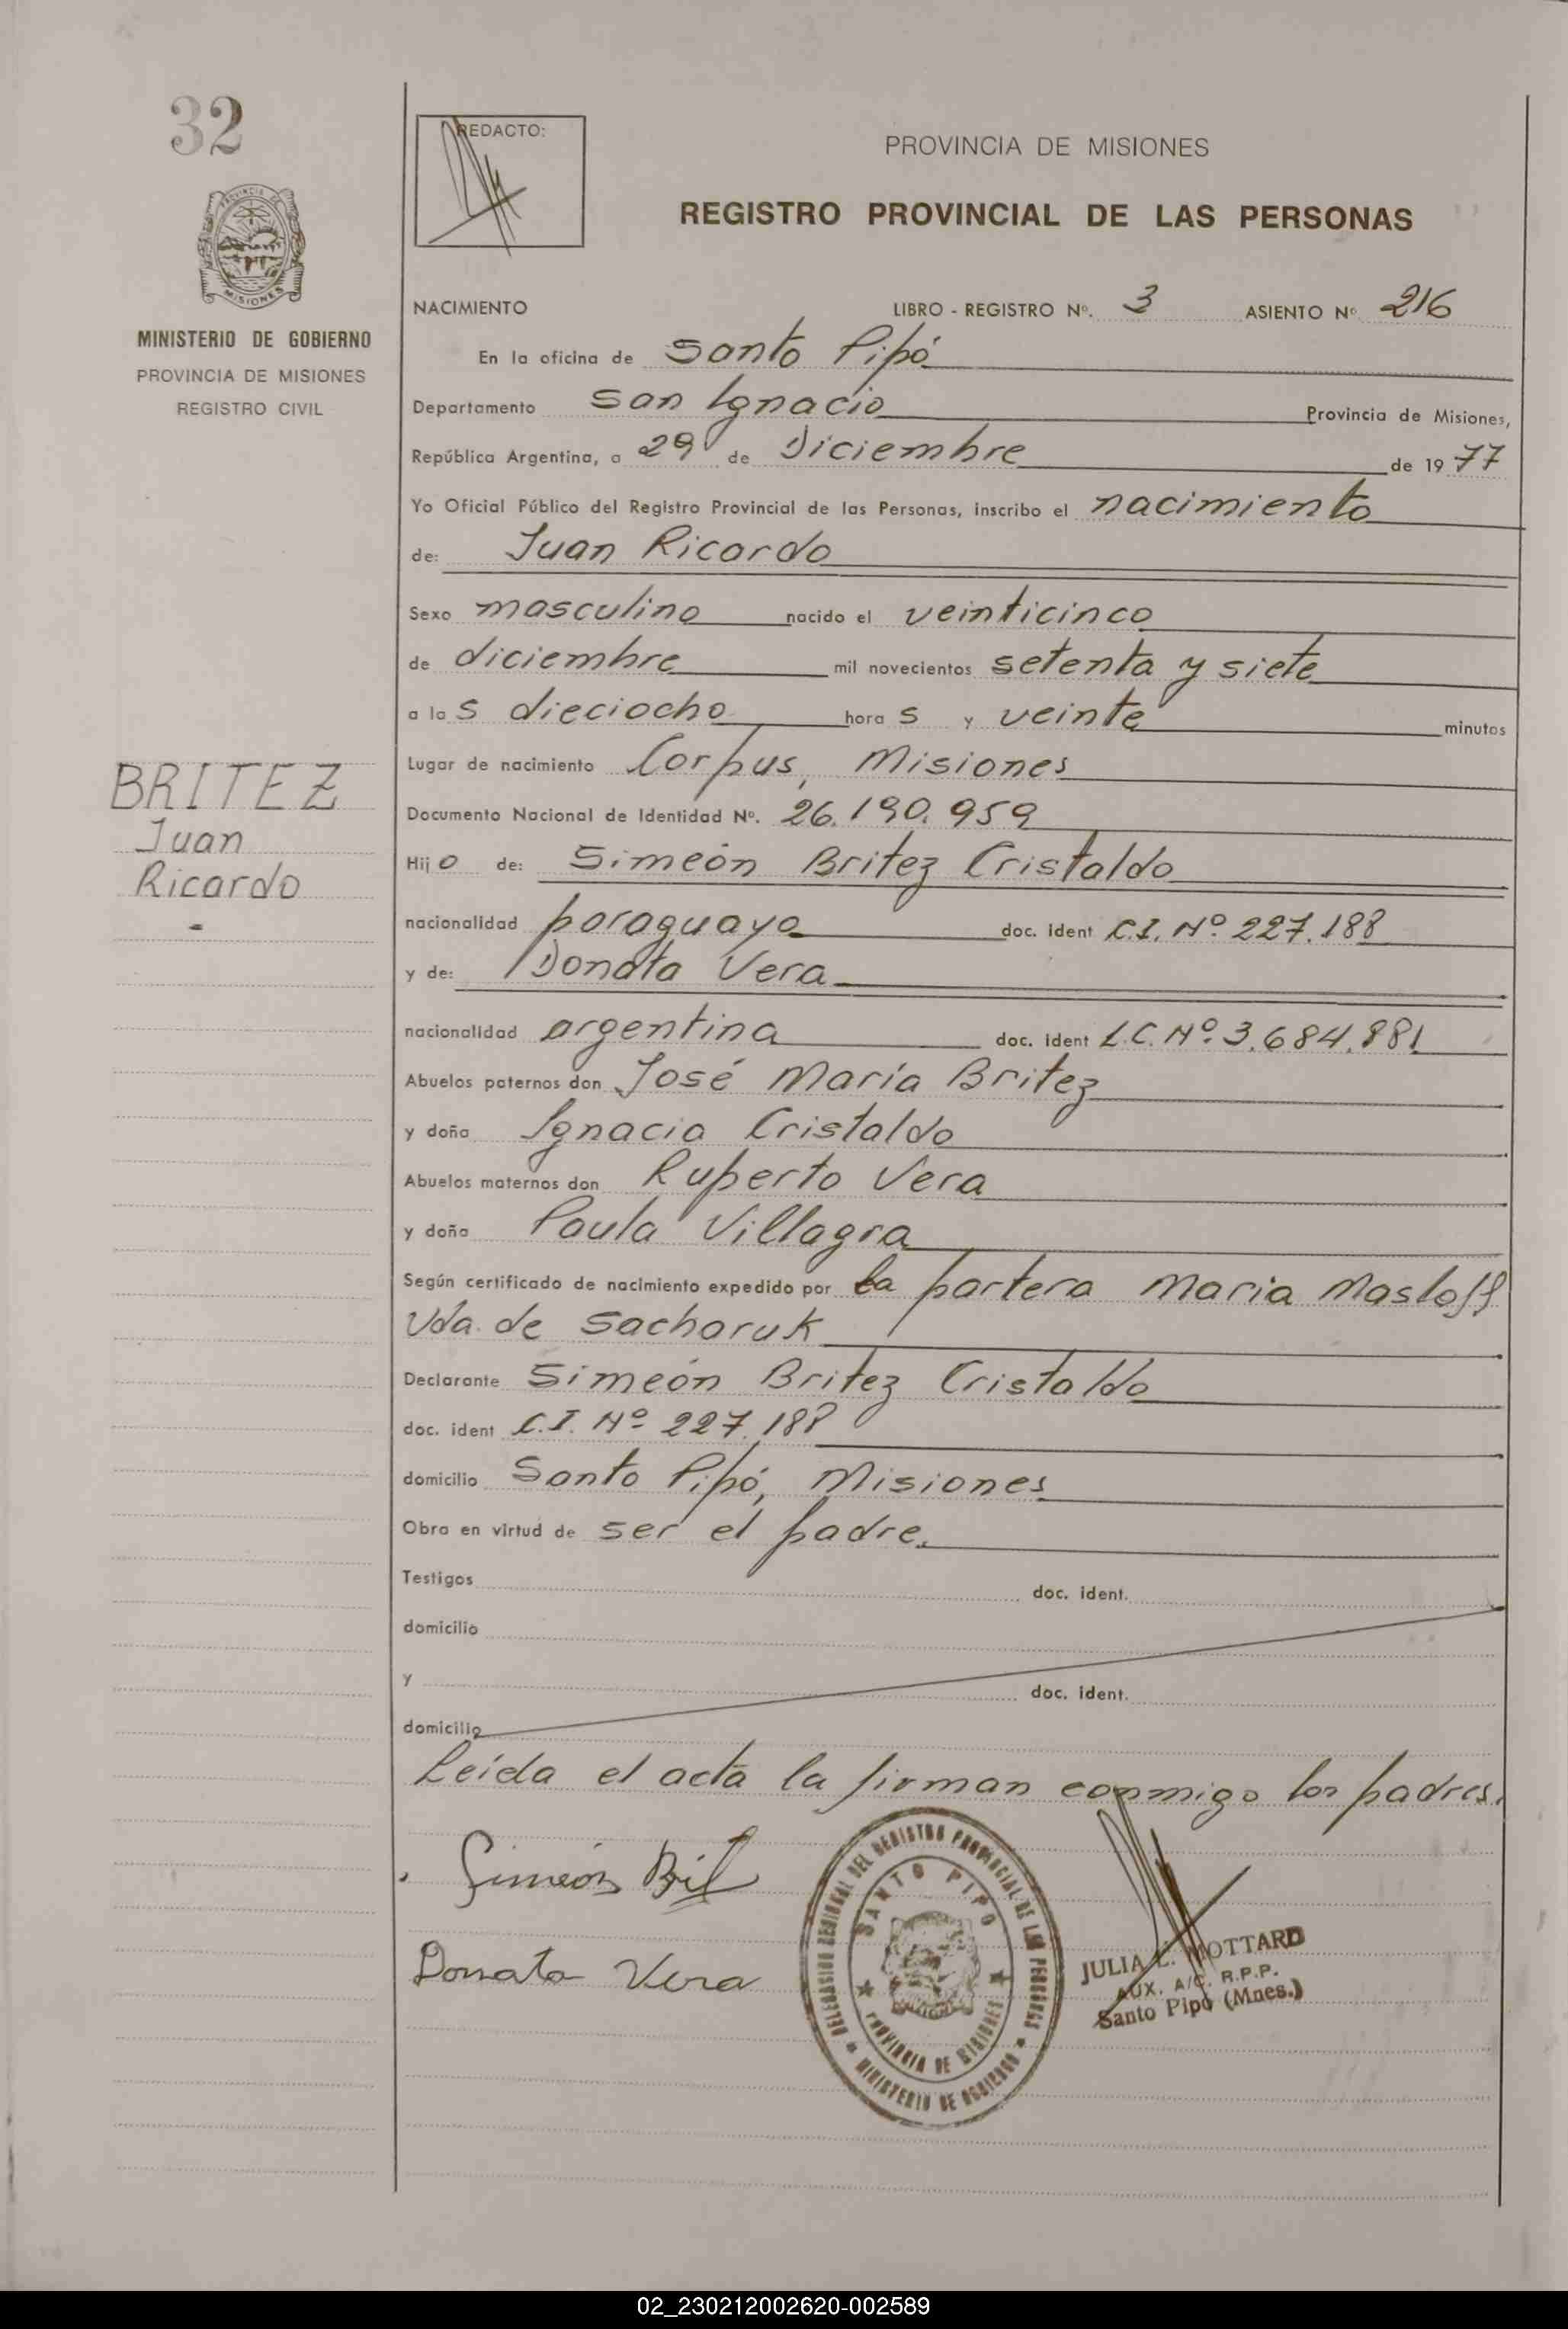 32
REDACTO:
PROVINCIA DE MISIONES
REGISTRO PROVINCIAL DE LAS PERSONAS
PROVINCIA DE
MISIONES
MINISTERIO DE GOBIERNO
PROVINCIA DE MISIONES
REGISTRO CIVIL
BRITEZ
Juan
Ricardo
-
NACIMIENTO LIBRO - REGISTRO Nº. 3 ASIENTO Nº 216
En la oficina de Santo Pipó
Departamento San Ignacio Provincia de Misiones,
República Argentina, a 29 de Diciembre de 1977
Yo Oficial Público del Registro Provincial de las Personas, inscribo el nacimiento
de: Juan Ricardo
Sexo masculino nacido el veinticinco
de diciembre mil novecientos setenta y siete
a las dieciocho horas y veinte minutos
Lugar de nacimiento Corpus, Misiones
Documento Nacional de Identidad Nº. 26.190.959
Hijo de: Simeón Britez Cristaldo
nacionalidad paraguaya doc. ident C.I. Nº 227.188
y de: Donata Vera
nacionalidad argentina doc. ident L.C. Nº 3.684.881
Abuelos paternos don José María Britez
y doña Ignacia Cristaldo
Abuelos maternos don Ruperto Vera
y doña Paula Villagra
Según certificado de nacimiento expedido por la partera Maria Masloff
Vda. de Sacharuk
Declarante Simeón Britez Cristaldo
doc. ident C.I. Nº 227.188
domicilio Santo Pipó, Misiones
Obra en virtud de ser el padre.
Testigos doc. ident.
domicilio
y doc. ident.
domicilio
Leída el acta la firman conmigo los padres.
Simeón Brit
Donata Vera
DELEGACION REGIONAL DEL REGISTRO PROVINCIAL DE LAS PERSONAS
SANTO PIPO
PROVINCIA DE MISIONES
MINISTERIO DE GOBIERNO
JULIA L. MOTTARD
AUX. A/C. R.P.P.
Santo Pipó (Mnes.)
02_230212002620-002589